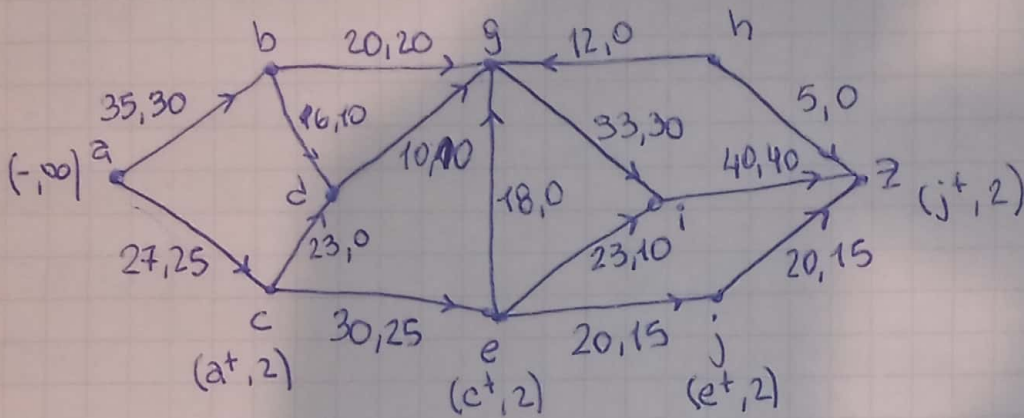 b 20,20 g 12,0 h
35,30 16,10 33,30 5,0
(-,∞) a 10,10 40,40 z (j⁺, 2)
d 18,0 i
27,25 23,0 23,10 20,15
c 30,25 e 20,15 j
(a⁺, 2) (c⁺, 2) (e⁺, 2)